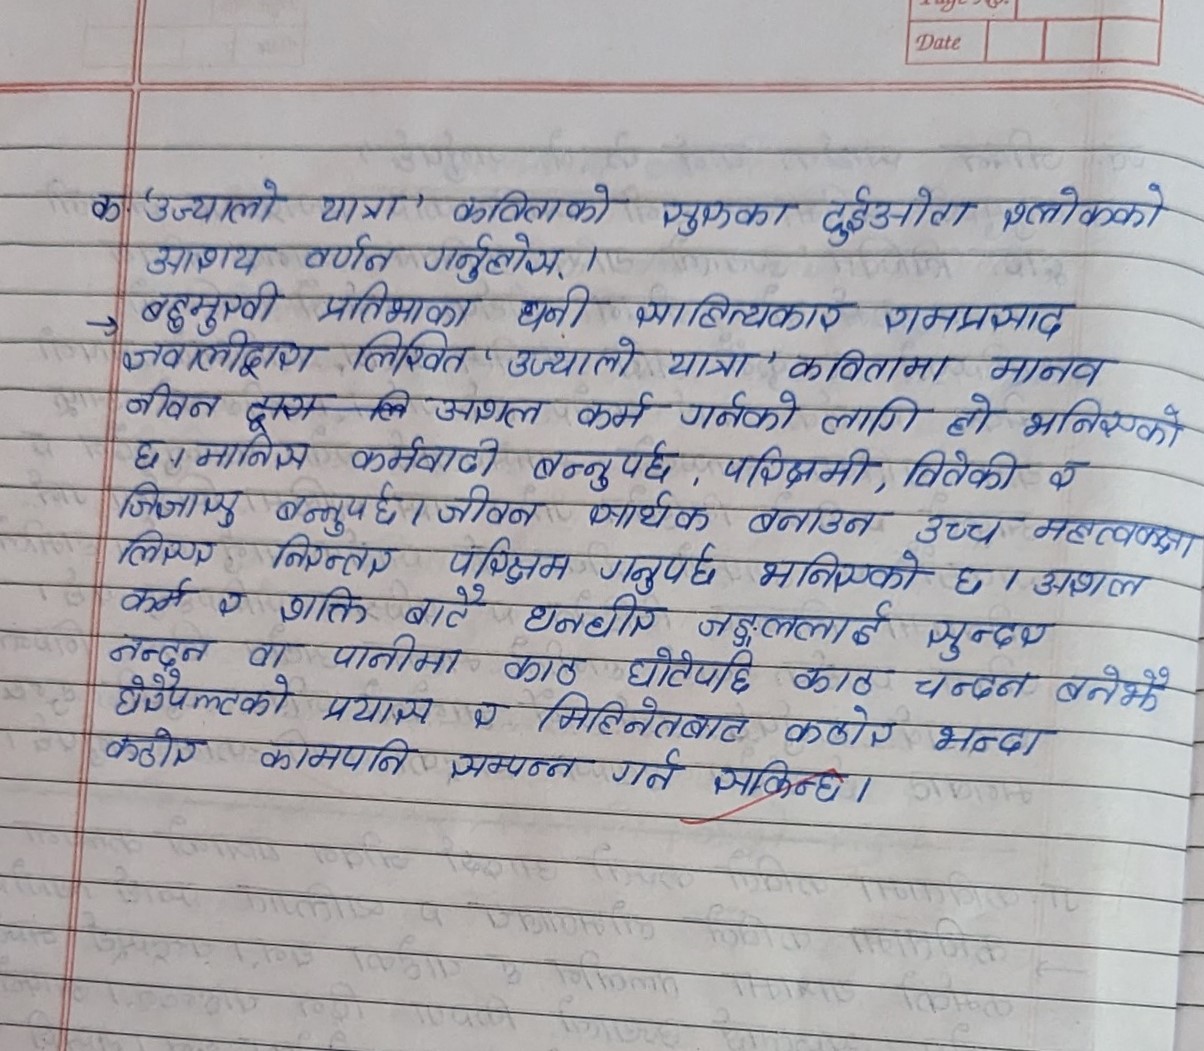 Date
क 'उज्यालो यात्रा' कविताको सुरुका दुईओटा श्लोकको
आशय वर्णन गर्नुहोस् ।
→ बहुमुखी प्रतिभाका धनी साहित्यकार रामप्रसाद
ज्ञवालीद्वारा लिखित 'उज्यालो यात्रा' कवितामा मानव
जीवन असल कर्म गर्नको लागि हो भनिएको
छ । मानिस कर्मवादी बन्नुपर्छ, परिश्रमी, विवेकी र
जिज्ञासु बन्नुपर्छ । जीवन सार्थक बनाउन उच्च महत्वकक्षा
लिएर निरन्तर परिश्रम गनुपर्छ भनिएको छ । अशल
कर्म र शक्ति बाटै घनघोर जङ्गललाई सुन्दर
नन्दन वा पानीमा काठ घोटेपछि काठ चन्दन बनेझैं
धेरैपल्टको प्रयास र मिहिनेतबाट कठोर भन्दा
कठोर कामपनि सम्पन्न गर्न सकिन्छ ।